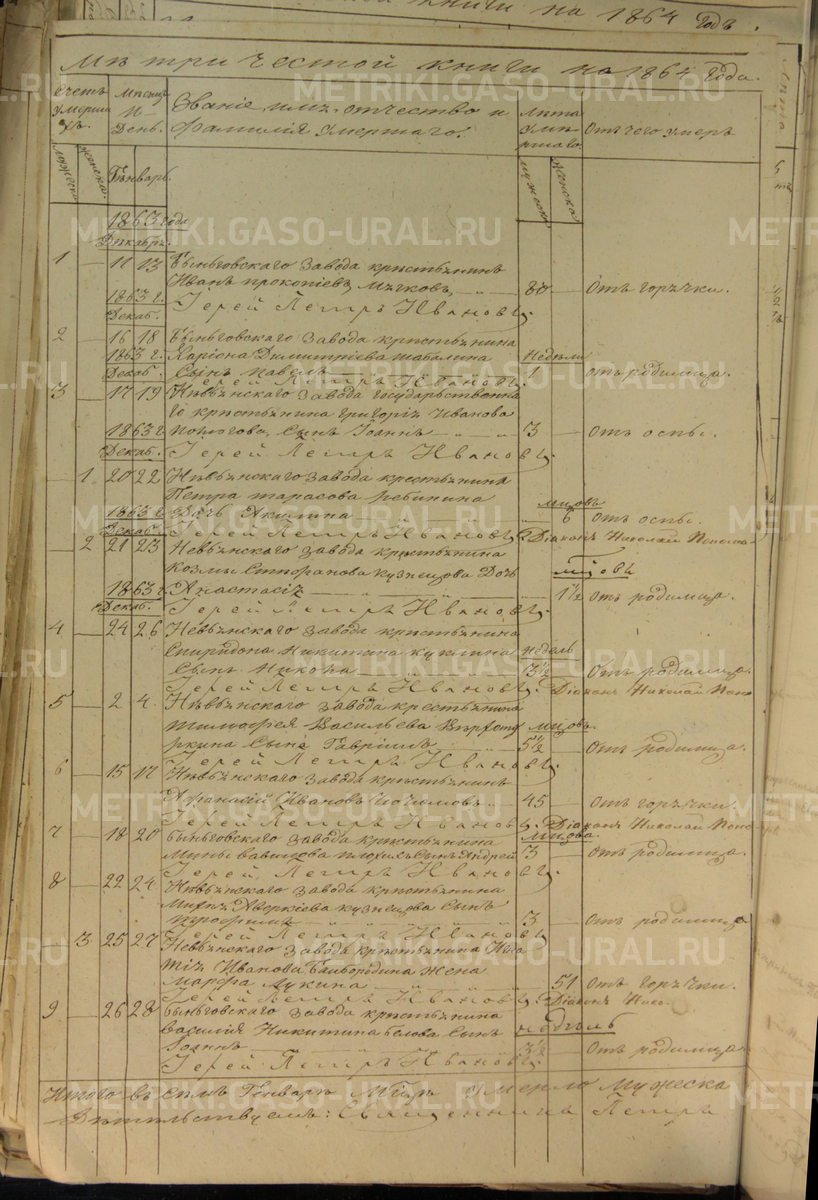 книги на 1864 Годъ.
Метрической книги на 1864 Года.
Счетъ умершихъ.
Мѣсяцъ и День.
Званіе, имя, отчество и фамилія умершаго.
Лѣта умершаго.
Отъ чего умеръ
мужеска женска. Генварь. мужеска женска
1863 года Декабрь.
1 — 11 13 Быньговскаго завода крестьянинъ
Иванъ прокопіевъ Мячковъ — 80 — Отъ горячки.
1863 г. Декаб. Іерей Петръ Ивановъ.
2 — 16 18 Быньговскаго завода крестьянина
1863 г. Лариона Димитріева Шабалина Недѣли
Декаб. Сынъ Павелъ — 1 отъ родимца.
Іерей Петръ Ивановъ.
3 — 17 19 Невьянскаго завода государственна
го крестьянина григорія Иванова
1863 г Сынъ Іоаннъ — 3 — отъ оспы.
Декаб. Іерей Петръ Ивановъ.
— 1 20 22 Невьянскаго завода крестьянина
Петра тарасова ребинина мцовъ
1863 г. Дочь Акилина — 6 отъ оспы.
Декаб. Іерей Петръ Ивановъ. Діаконъ Николай Поно
— 2 21 23 Невьянскаго завода крестьянина
Козмы Стефанова кузнецова Дочь мцовъ
1863 г Анастасія — 1½ отъ родимца.
Декаб. Іерей Петръ Ивановъ.
4 — 24 26 Невьянскаго завода крестьянина
Спиридона Никитина недѣль
Сынъ — 3½ Отъ родимца.
Іерей Петръ Ивановъ. Діаконъ Николай Поно
5 — 2 4. Невьянскаго завода крестьянина
тимофея Васильева мцовъ.
Сынъ Гавріилъ — 5½ — отъ родимца.
Іерей Петръ Ивановъ.
6 — 15 17 Невьянскаго завода крестьянинъ
Афанасій Ивановъ — 45 — Отъ горячки.
Іерей Петръ Ивановъ. Діаконъ Николай Поно
7 — 18 20 Быньговскаго завода крестьянина Мцова.
Мины вавилова Сынъ Андрей 3 — отъ родимца.
Іерей Петръ Ивановъ.
8 — 22 24 Невьянскаго завода крестьянина
Аверкіева кузнецова Сынъ
— 3 — Отъ родимца
Іерей Петръ Ивановъ
— 3 25 27 Невьянскаго завода крестьянина Игна
тія Иванова Жена
Марфа Лукина — 51 отъ горячки.
Іерей Петръ Ивановъ. Діаконъ Нико.
9 — 26 28 Быньговскаго завода крестьянина
василія Никитина белова Сынъ недѣль
Іоаннъ — 3½ — Отъ родимца.
Іерей Петръ Ивановъ.
Итого въ семъ Генварѣ Мцѣ умерло мужеска
Священникъ Петръ
METRIKI.GASO-URAL.RU